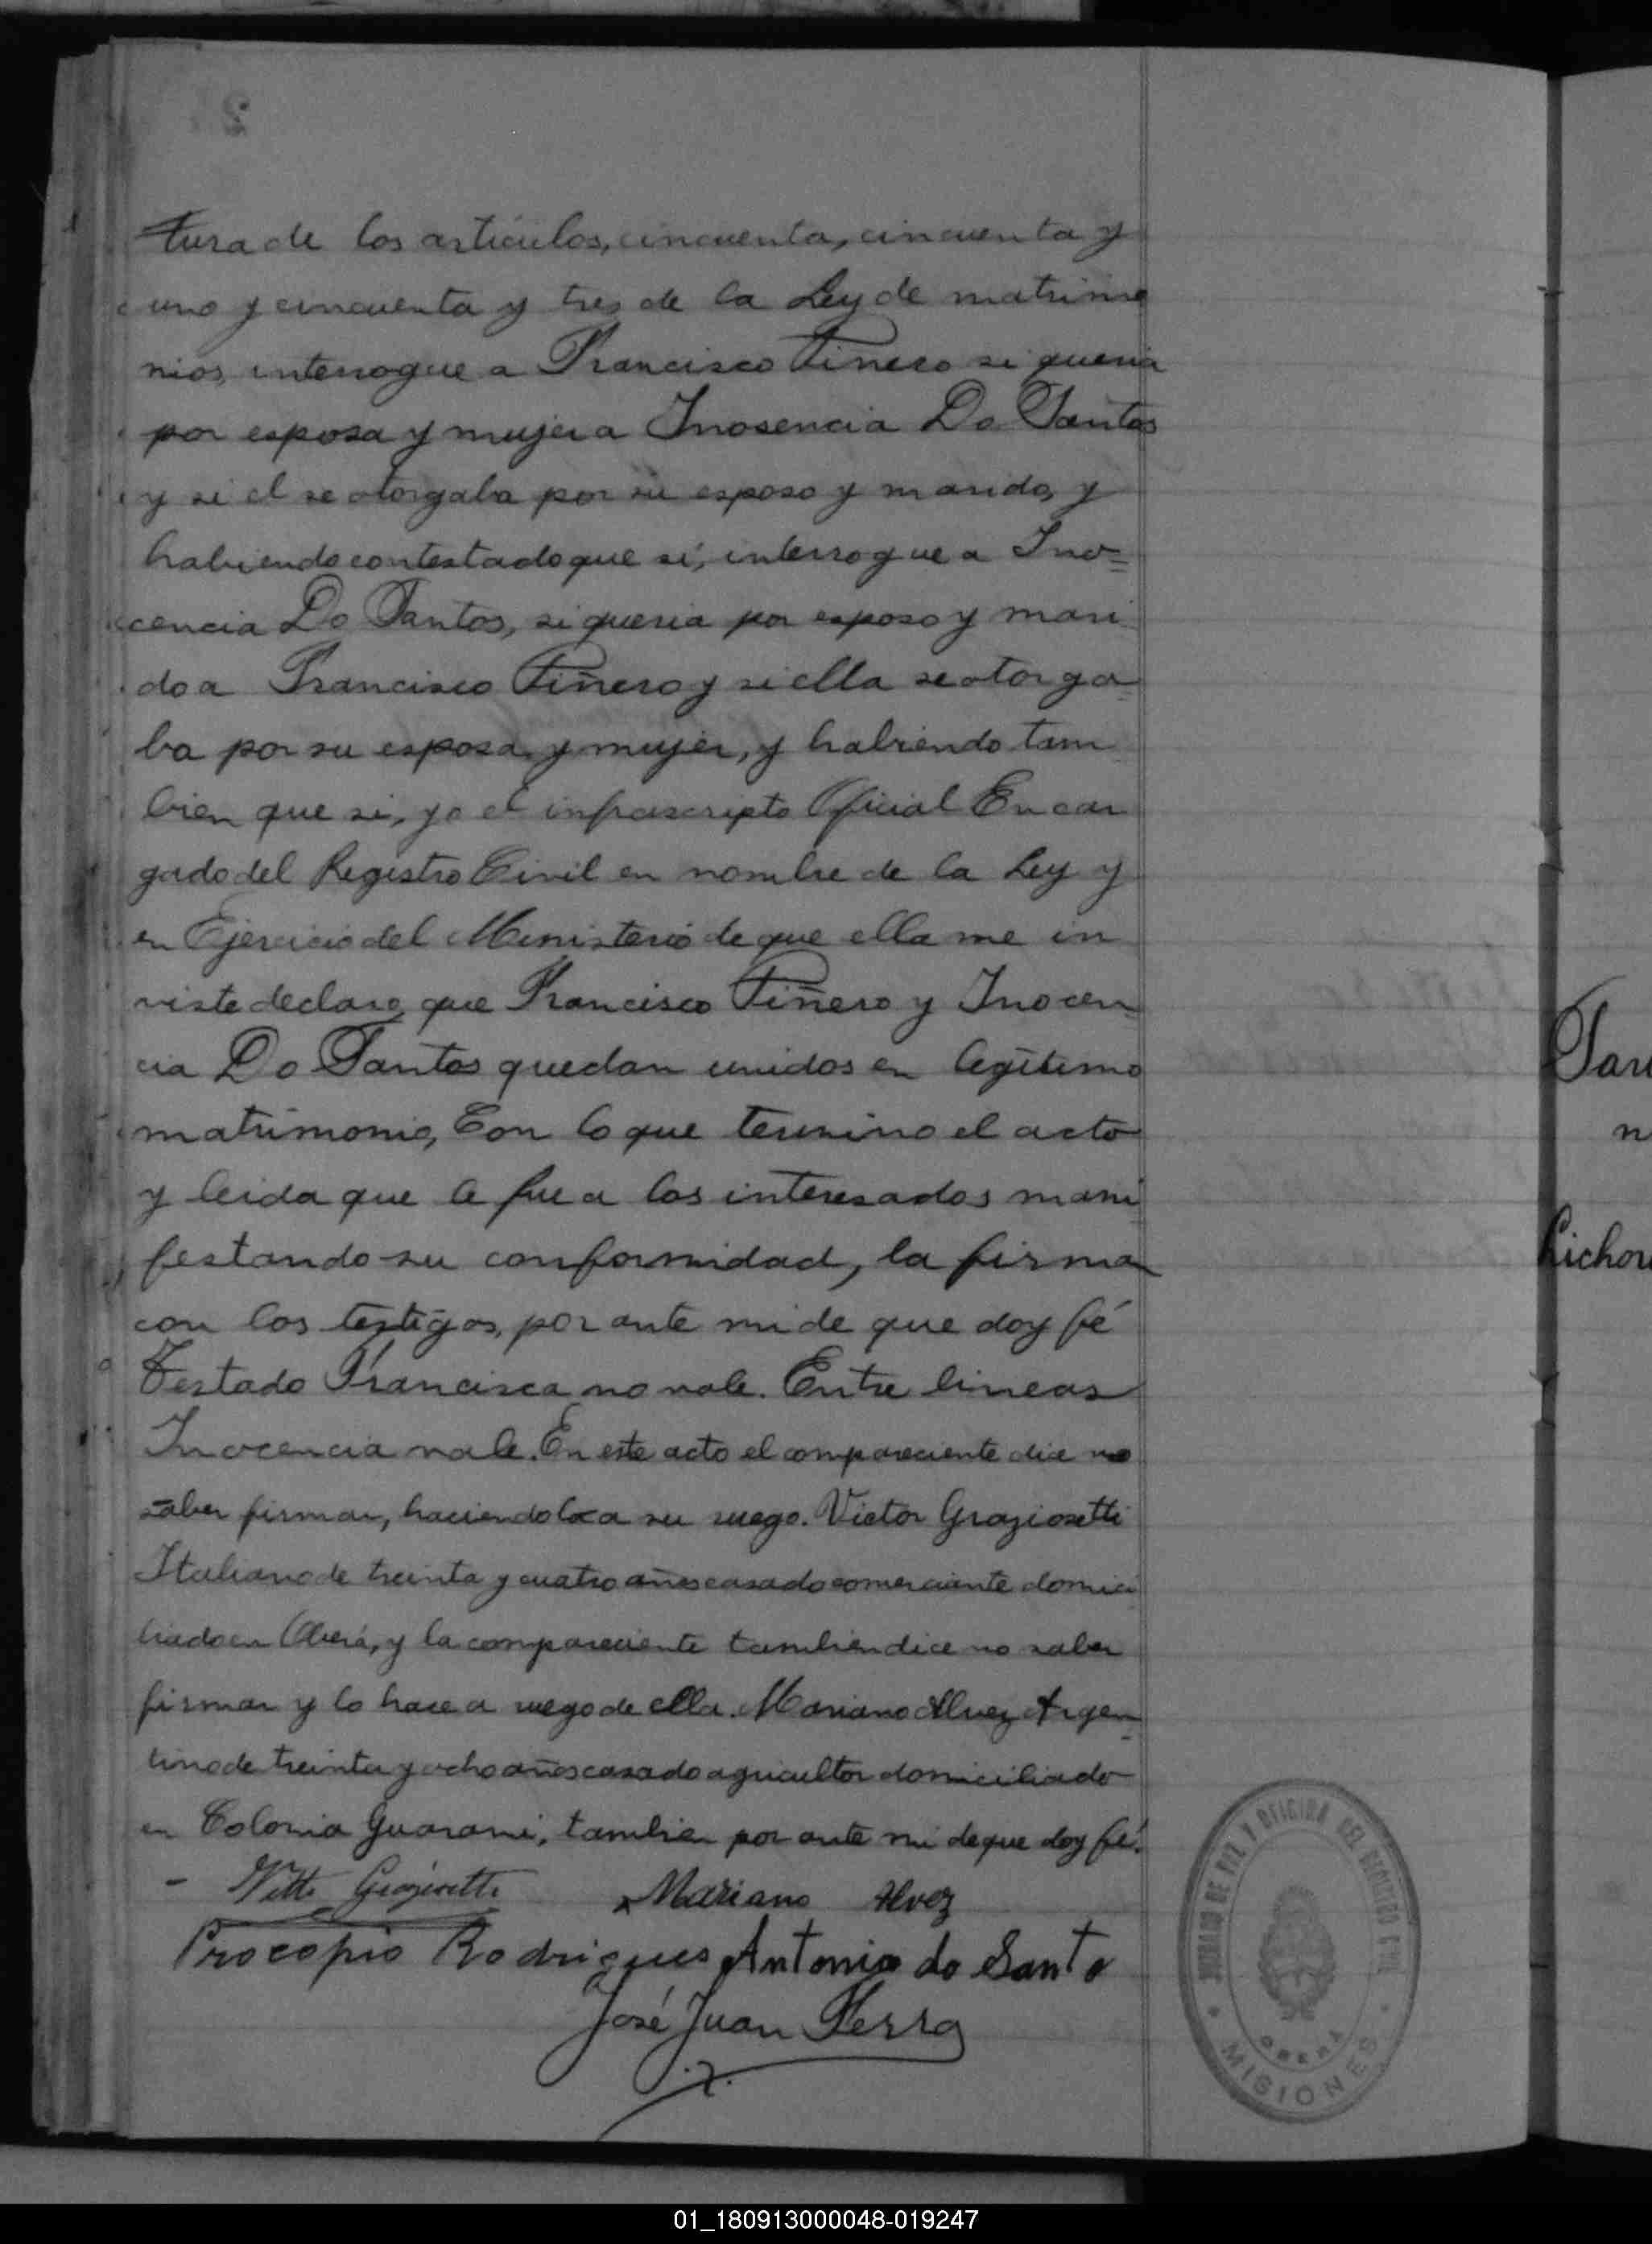 tura de los articulos, cincuenta, cincuenta y
uno y cincuenta y tres de la Ley de matrimo
nios, interrogue a Francisco Piñero si queria
por esposa y mujer a Inosencia Do Santos
y si el se otorgaba por su esposo y marido, y
habiendo contestado que si, interrogue a Ino=
cencia Do Santos, si queria por esposo y mari
do a Francisco Piñero y si ella se otorga
ba por su esposa y mujer, y habiendo tam
bien que si, yo el infrascripto Oficial Encar
gado del Registro Civil en nombre de la Ley y
en Ejercicio del Ministerio de que ella me in
viste declaro, que Francisco Piñero y Inocen
cia Do Santos quedan unidos en legitimo
matrimonio, Con lo que termino el acto
y leida que le fue a los interesados mani
festando su conformidad, la firma
con los testigos, por ante mi de que doy fé
Testado Francisca no vale. Entre lineas
Inocencia vale. En este acto el compareciente dice no
saber firmar, haciendolo a su ruego. Victor Graziosetti
Italiano de treinta y cuatro años casado comerciante domici
liado en Oberá, y la compareciente tambien dice no saber
firmar y lo hace a ruego de ella. Mariano Alvez Argen
tino de treinta y ocho años casado agricultor domiciliado
en Colonia Guarani, tambien por ante mi de que doy fé.
Mariano Alvez
Procopio Rodrigues Antonio do Santo
José Juan Ferra
JUZGADO DE PAZ Y OFICINA DEL REGISTRO CIVIL
OBERA
MISIONES
San
n
Lichow
01_180913000048-019247